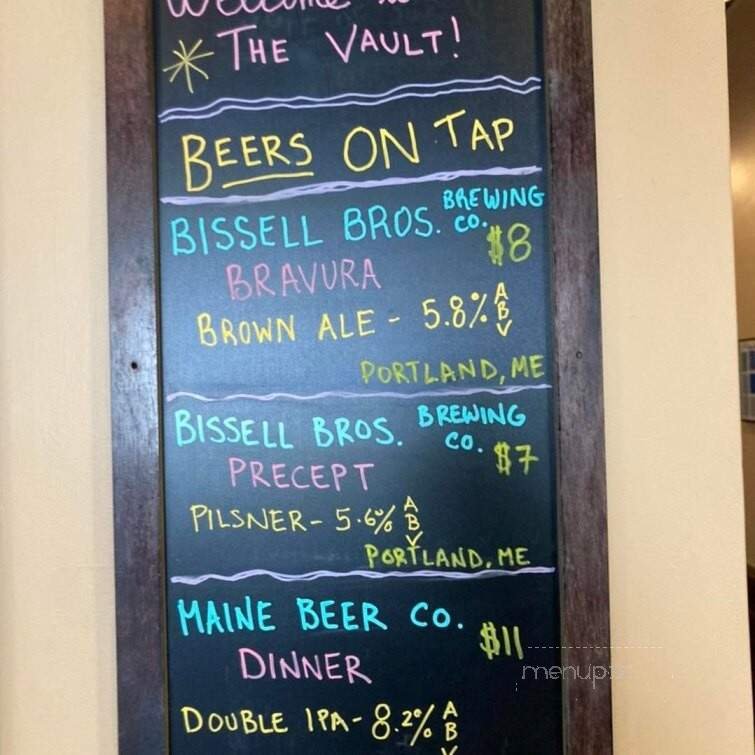 Welcome to
THE VAULT!
BEERS ON TAP
BISSELL BROS. BREWING CO. $8
BRAVURA
BROWN ALE - 5.8% ABV
PORTLAND, ME
BISSELL BROS. BREWING CO. $7
PRECEPT
PILSNER - 5.6% ABV
PORTLAND, ME
MAINE BEER CO. $11
DINNER
DOUBLE IPA - 8.2% ABV